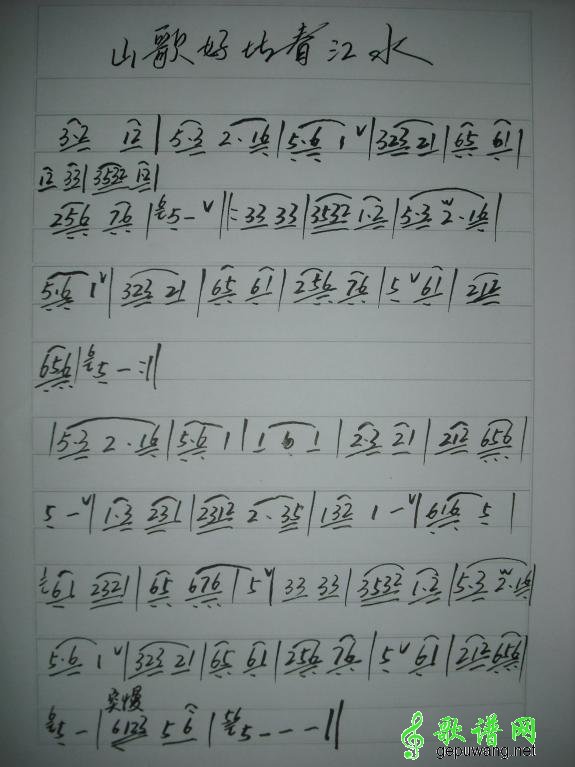 山歌好比春江水
3·2 12 | 5·3 2·16 | 5·6 1 ∨ | 323 21 | 65 61 |
12 33 | 3532 12 |
256 76 | 5 - ∨ ‖: 33 33 | 3532 1·2 | 5·3 2·16 |
5·6 1 ∨ | 323 21 | 65 61 | 256 76 | 5 ∨ 61 | 212
656 | 6 5 - :‖
| 5·3 2·16 | 5·6 1 | 1 6 1 | 2·3 21 | 212 656 |
5 - ∨ | 1·3 231 | 2312 2·35 | 132 1 - ∨ | 616 5 |
1 61 2321 | 65 676 | 5 ∨ | 33 33 | 3532 1·2 | 5·3 2·16 |
5·6 1 ∨ | 323 21 | 65 61 | 256 76 | 5 ∨ 61 | 212 656 |
突慢
6 5 - | 6123 5 6 | 56 5 - - - ‖
歌谱网
gepuwang.net